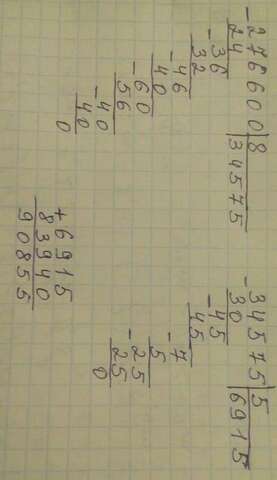 -276600|8
24|34575
-36
32
-46
40
-60
56
-40
40
0
-34575|5
30|6915
-45
45
-7
5
-25
25
0
+6915
83940
90855